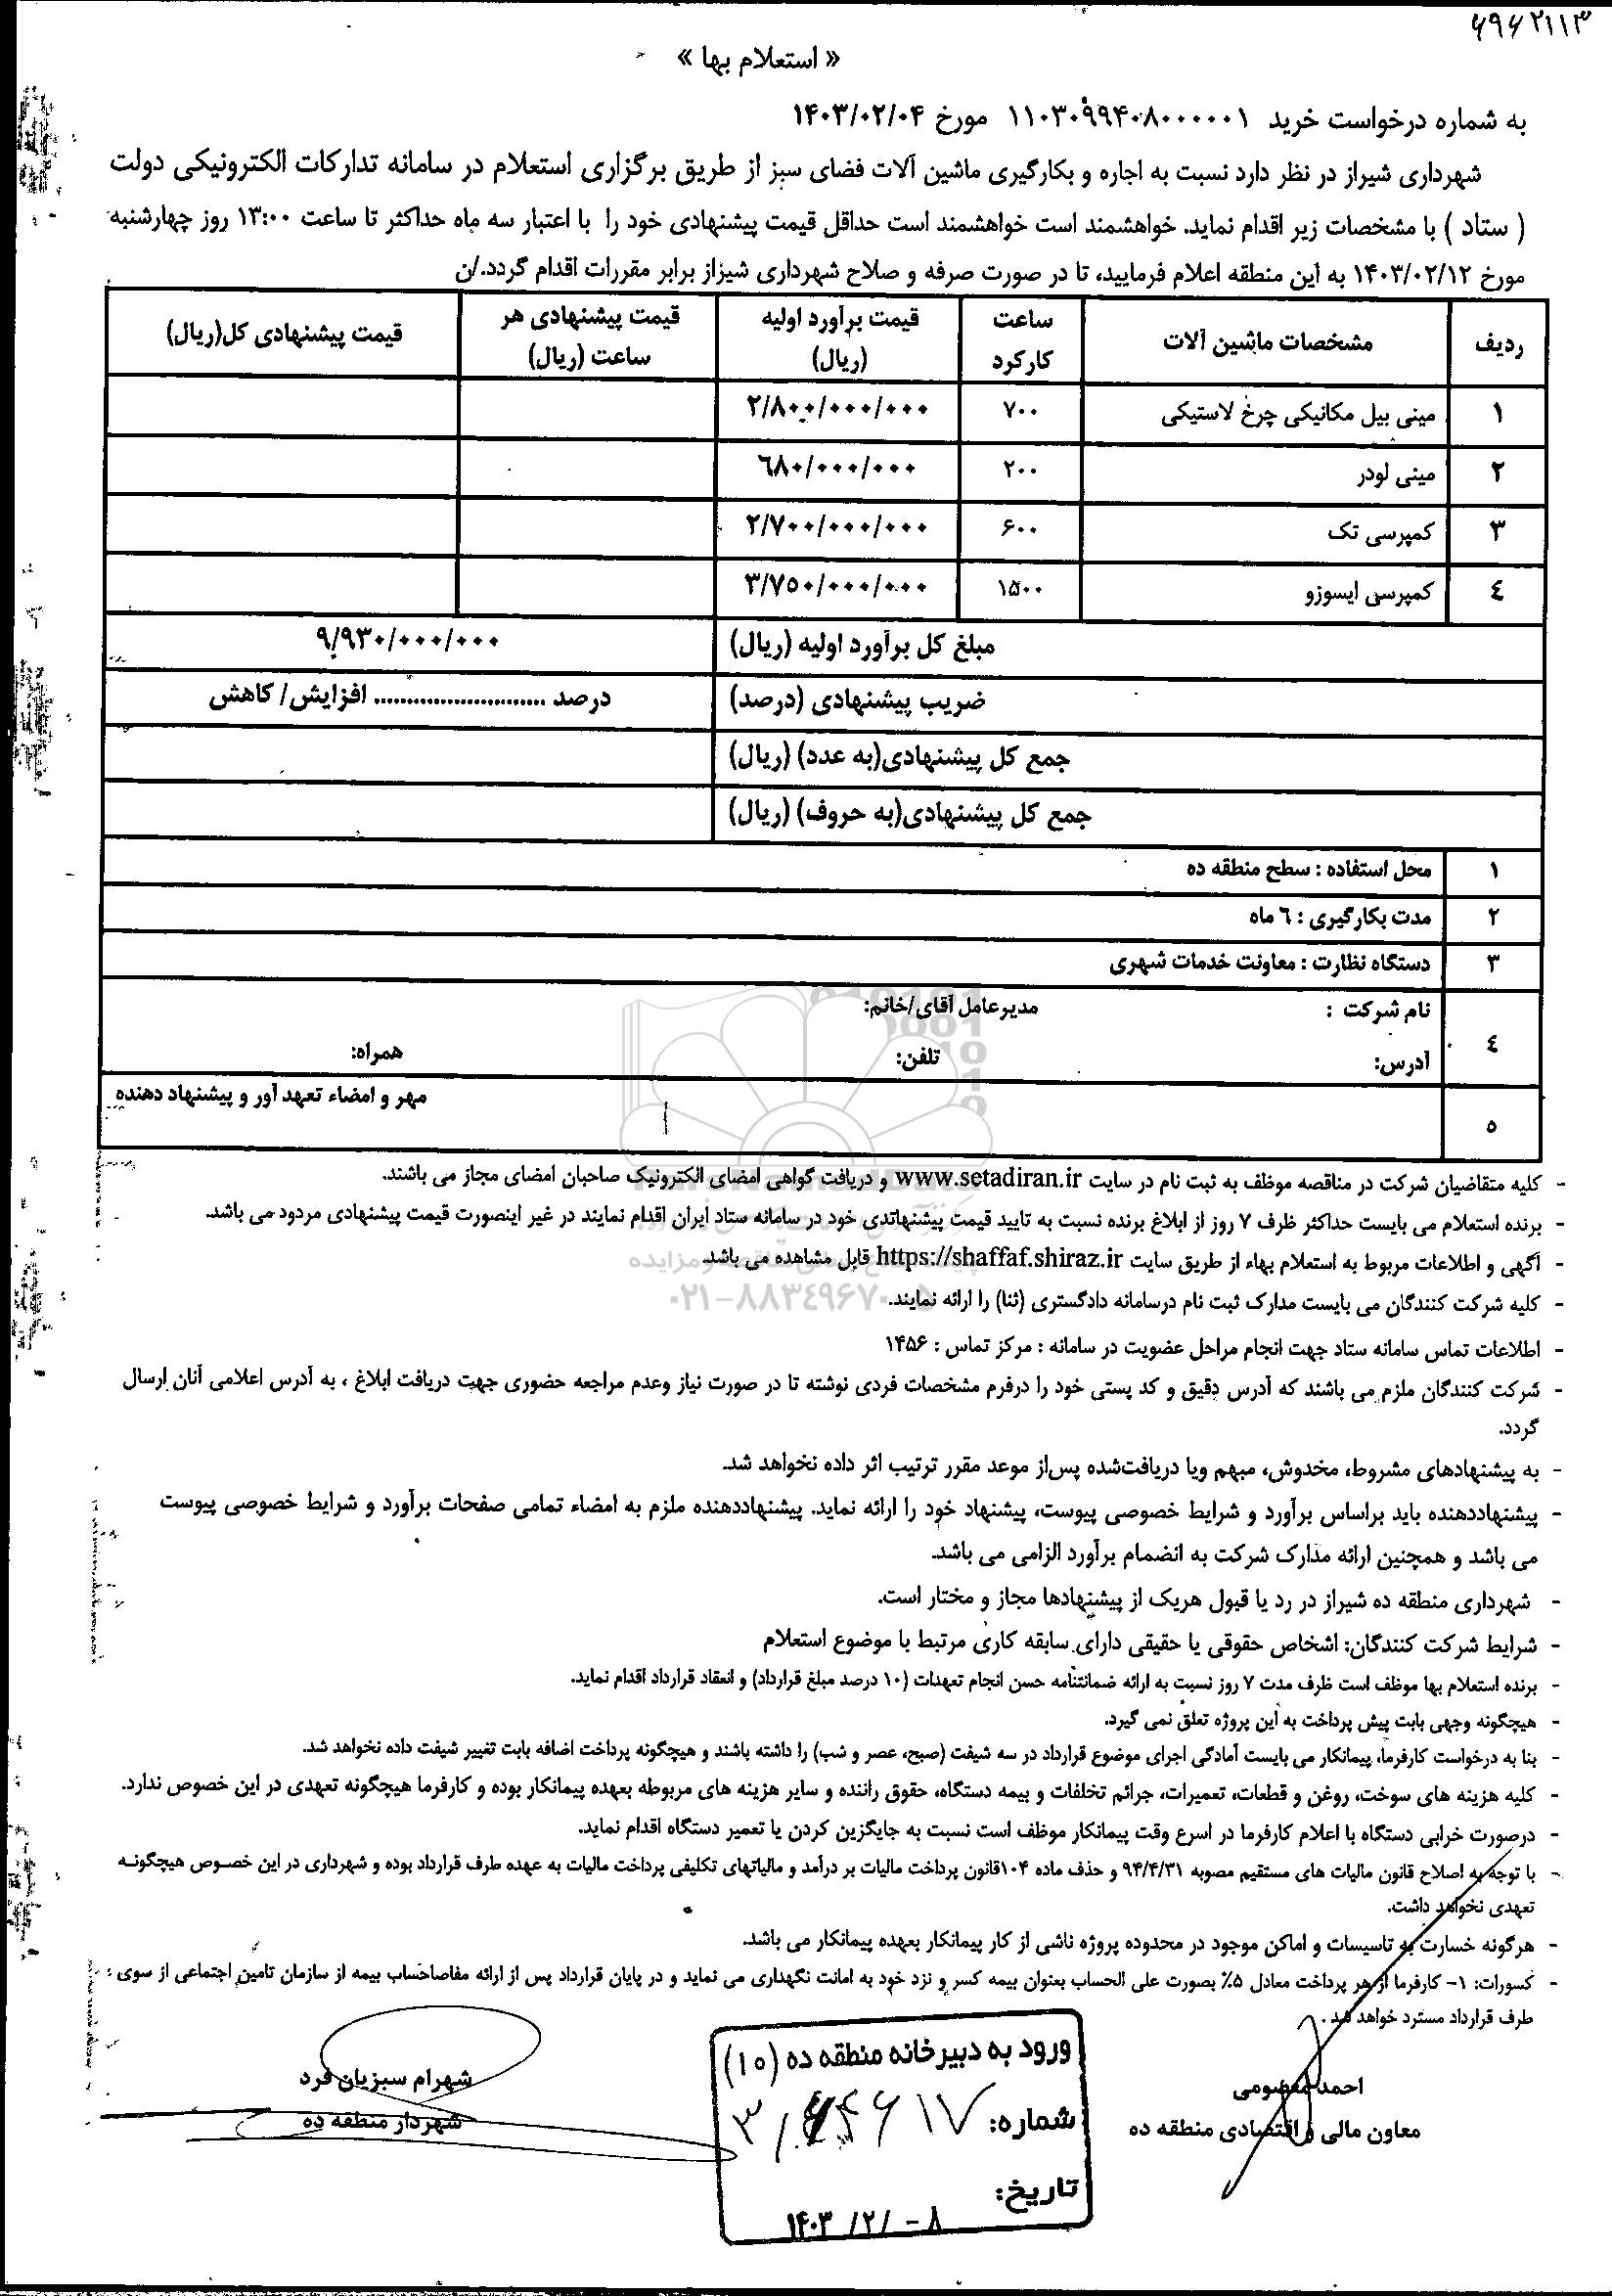 ۶۹۶۲۱۱۳
« استعلام بها »
به شماره درخواست خرید ۱۱۰۳۰۹۹۴۰۸۰۰۰۰۰۱ مورخ ۱۴۰۳/۰۲/۰۴
شهرداری شیراز در نظر دارد نسبت به اجاره و بکارگیری ماشین آلات فضای سبز از طریق برگزاری استعلام در سامانه تدارکات الکترونیکی دولت
( ستاد ) با مشخصات زیر اقدام نماید. خواهشمند است خواهشمند است حداقل قیمت پیشنهادی خود را با اعتبار سه ماه حداکثر تا ساعت ۱۳:۰۰ روز چهارشنبه
مورخ ۱۴۰۳/۰۲/۱۲ به این منطقه اعلام فرمایید، تا در صورت صرفه و صلاح شهرداری شیراز برابر مقررات اقدام گردد./ن
ردیف مشخصات ماشین آلات ساعت کارکرد قیمت برآورد اولیه (ریال) قیمت پیشنهادی هر ساعت (ریال) قیمت پیشنهادی کل(ریال)
۱ مینی بیل مکانیکی چرخ لاستیکی ۷۰۰ ۲/۸۰۰/۰۰۰/۰۰۰
۲ مینی لودر ۲۰۰ ٦۸۰/۰۰۰/۰۰۰
۳ کمپرسی تک ۶۰۰ ۲/۷۰۰/۰۰۰/۰۰۰
٤ کمپرسی ایسوزو ۱۵۰۰ ۳/۷۵۰/۰۰۰/۰۰۰
مبلغ کل برآورد اولیه (ریال) ۹/۹۳۰/۰۰۰/۰۰۰
ضریب پیشنهادی (درصد) درصد .......................... افزایش/ کاهش
جمع کل پیشنهادی(به عدد) (ریال)
جمع کل پیشنهادی(به حروف) (ریال)
۱ محل استفاده : سطح منطقه ده
۲ مدت بکارگیری : ٦ ماه
۳ دستگاه نظارت : معاونت خدمات شهری
٤ نام شرکت : مدیرعامل آقای/خانم:
آدرس: تلفن: همراه:
٥ مهر و امضاء تعهد آور و پیشنهاد دهنده
- کلیه متقاضیان شرکت در مناقصه موظف به ثبت نام در سایت www.setadiran.ir و دریافت گواهی امضای الکترونیک صاحبان امضای مجاز می باشند.
- برنده استعلام می بایست حداکثر ظرف ۷ روز از ابلاغ برنده نسبت به تایید قیمت پیشنهاتدی خود در سامانه ستاد ایران اقدام نمایند در غیر اینصورت قیمت پیشنهادی مردود می باشد.
- آگهی و اطلاعات مربوط به استعلام بهاء از طریق سایت https://shaffaf.shiraz.ir قابل مشاهده می باشد.
۰۲۱-۸۸۳۴۹۶۷۰
- کلیه شرکت کنندگان می بایست مدارک ثبت نام درسامانه دادگستری (ثنا) را ارائه نمایند.
- اطلاعات تماس سامانه ستاد جهت انجام مراحل عضویت در سامانه : مرکز تماس : ۱۴۵۶
- شرکت کنندگان ملزم می باشند که آدرس دقیق و کد پستی خود را درفرم مشخصات فردی نوشته تا در صورت نیاز وعدم مراجعه حضوری جهت دریافت ابلاغ ، به آدرس اعلامی آنان ارسال
گردد.
- به پیشنهادهای مشروط، مخدوش، مبهم ویا دریافت‌شده پس‌از موعد مقرر ترتیب اثر داده نخواهد شد.
- پیشنهاددهنده باید براساس برآورد و شرایط خصوصی پیوست، پیشنهاد خود را ارائه نماید. پیشنهاددهنده ملزم به امضاء تمامی صفحات برآورد و شرایط خصوصی پیوست
می باشد و همچنین ارائه مدارک شرکت به انضمام برآورد الزامی می باشد.
- شهرداری منطقه ده شیراز در رد یا قبول هریک از پیشنهادها مجاز و مختار است.
- شرایط شرکت کنندگان: اشخاص حقوقی یا حقیقی دارای سابقه کاری مرتبط با موضوع استعلام
- برنده استعلام بها موظف است ظرف مدت ۷ روز نسبت به ارائه ضمانتنامه حسن انجام تعهدات (۱۰ درصد مبلغ قرارداد) و انعقاد قرارداد اقدام نماید.
- هیچگونه وجهی بابت پیش پرداخت به این پروژه تعلق نمی گیرد.
- بنا به درخواست کارفرما، پیمانکار می بایست آمادگی اجرای موضوع قرارداد در سه شیفت (صبح، عصر و شب) را داشته باشند و هیچگونه پرداخت اضافه بابت تغییر شیفت داده نخواهد شد.
- کلیه هزینه های سوخت، روغن و قطعات، تعمیرات، جرائم تخلفات و بیمه دستگاه، حقوق راننده و سایر هزینه های مربوطه بعهده پیمانکار بوده و کارفرما هیچگونه تعهدی در این خصوص ندارد.
- درصورت خرابی دستگاه با اعلام کارفرما در اسرع وقت پیمانکار موظف است نسبت به جایگزین کردن یا تعمیر دستگاه اقدام نماید.
- با توجه به اصلاح قانون مالیات های مستقیم مصوبه ۹۴/۴/۳۱ و حذف ماده ۱۰۴قانون پرداخت مالیات بر درآمد و مالیاتهای تکلیفی پرداخت مالیات به عهده طرف قرارداد بوده و شهرداری در این خصوص هیچگونه
تعهدی نخواهد داشت.
- هرگونه خسارت به تاسیسات و اماکن موجود در محدوده پروژه ناشی از کار پیمانکار بعهده پیمانکار می باشد.
- کسورات: ۱- کارفرما از هر پرداخت معادل ۵٪ بصورت علی الحساب بعنوان بیمه کسر و نزد خود به امانت نگهداری می نماید و در پایان قرارداد پس از ارائه مفاصاحساب بیمه از سازمان تامین اجتماعی از سوی
طرف قرارداد مسترد خواهد شد.
احمد معصومی
معاون مالی و اقتصادی منطقه ده
ورود به دبیرخانه منطقه ده (۱۰)
شماره:
تاریخ: ۱۴۰۳/۲/-۸
شهرام سبزیان فرد
شهردار منطقه ده